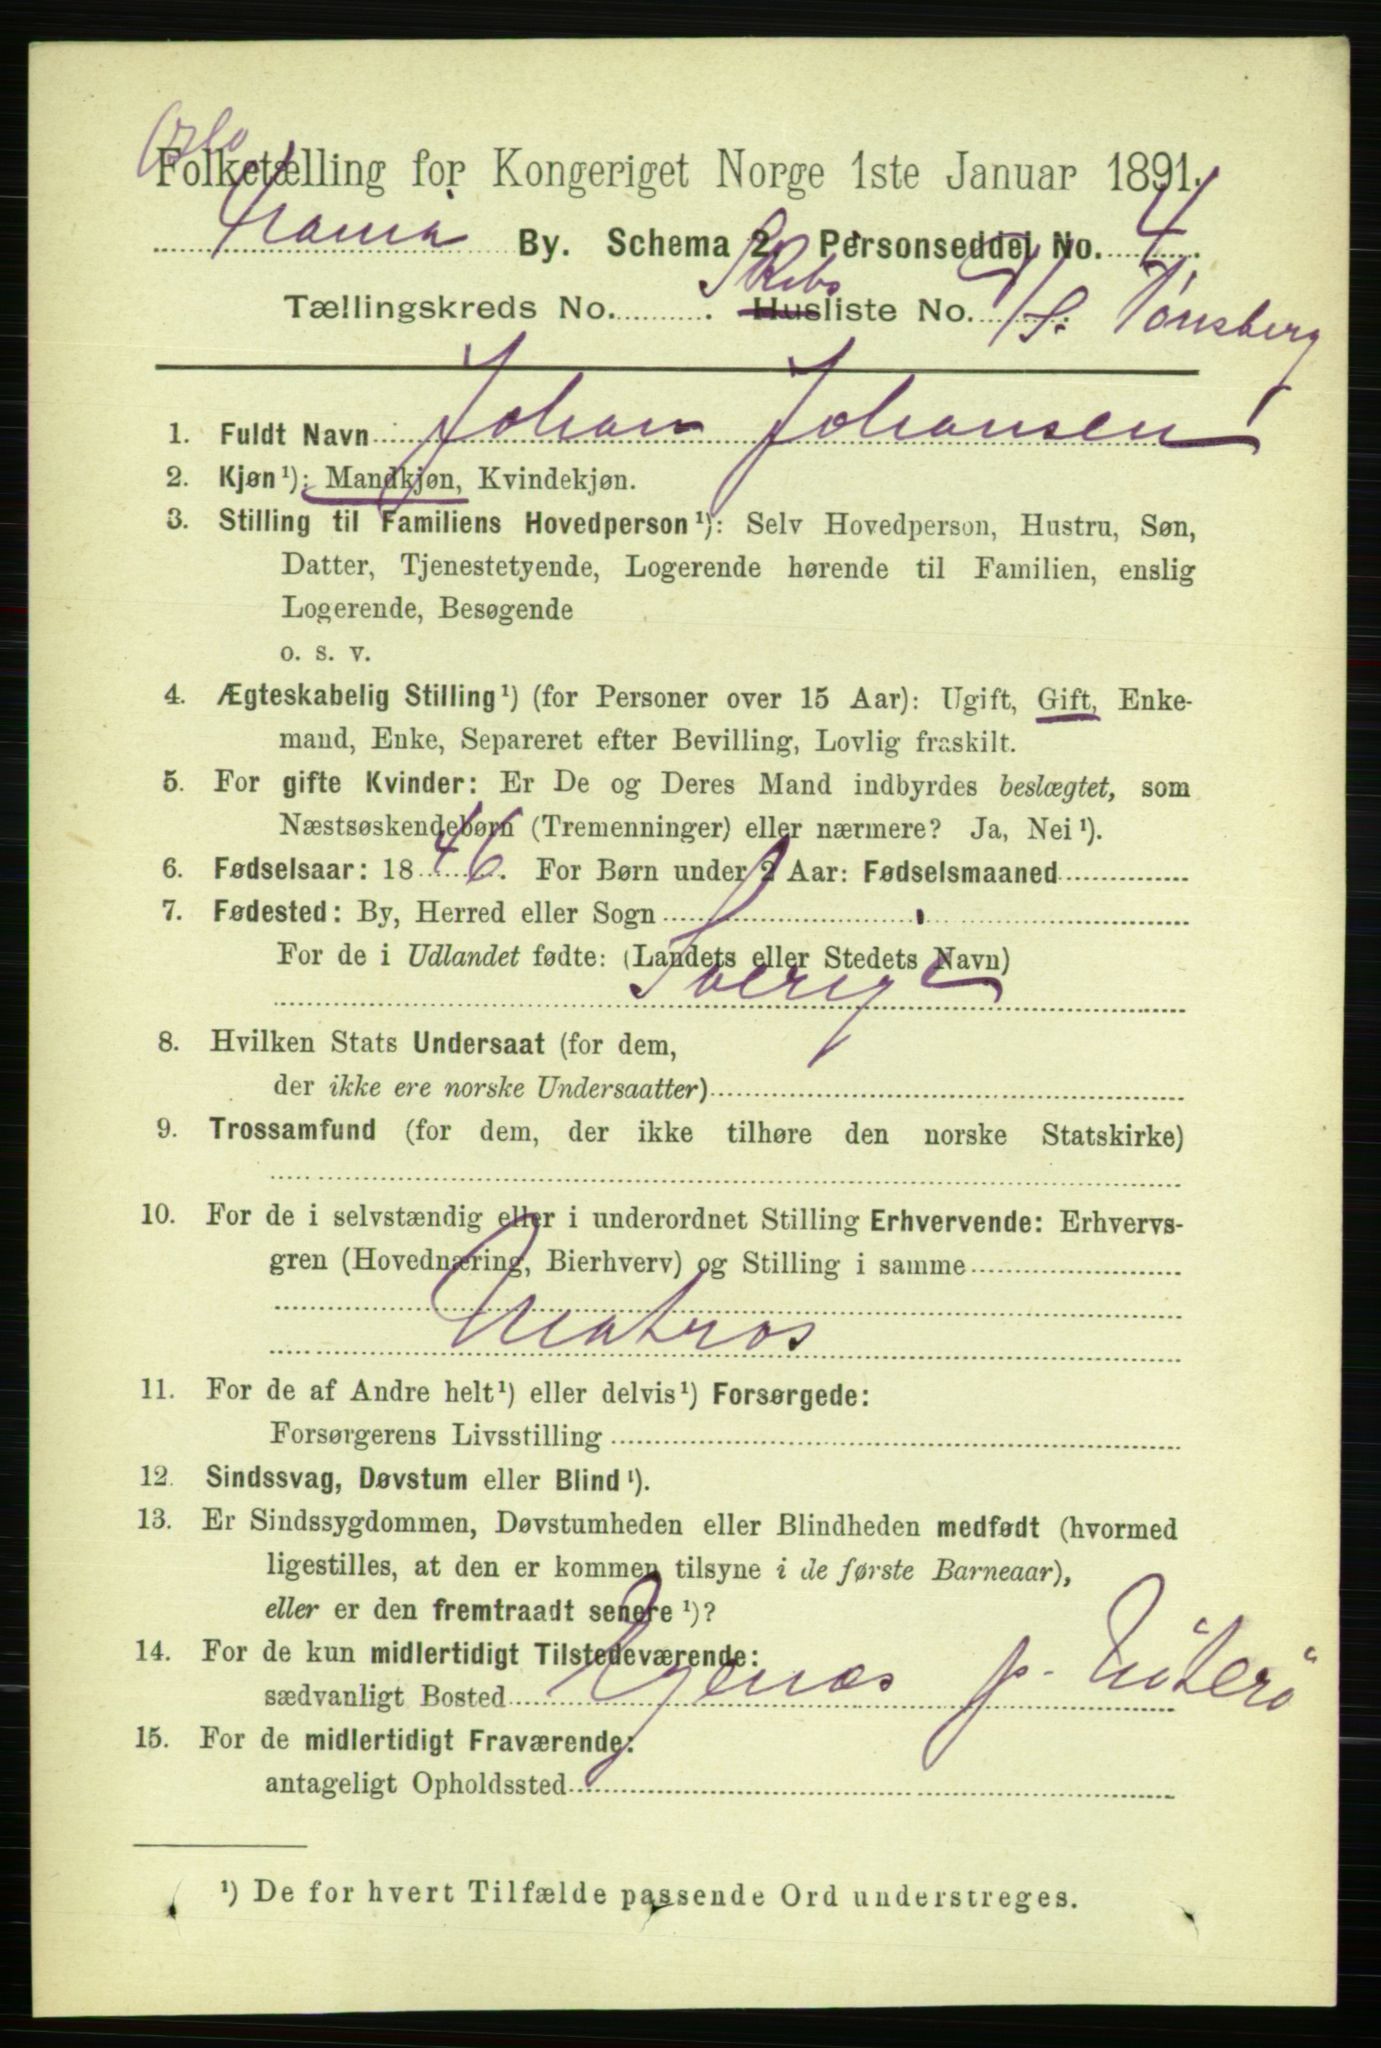 Oslo
Folketælling for Kongeriget Norge 1ste Januar 1891.
By. Schema 2. Personseddel No. 4.
Tællingskreds No. . Skibs Husliste No. 7/S. Tönsberg
1. Fuldt Navn Johan Johansen
2. Kjøn¹): Mandkjøn, Kvindekjøn.
3. Stilling til Familiens Hovedperson¹): Selv Hovedperson, Hustru, Søn,
Datter, Tjenestetyende, Logerende hørende til Familien, enslig
Logerende, Besøgende
o. s. v.
4. Ægteskabelig Stilling¹) (for Personer over 15 Aar): Ugift, Gift, Enke-
mand, Enke, Separeret efter Bevilling, Lovlig fraskilt.
5. For gifte Kvinder: Er De og Deres Mand indbyrdes beslægtet, som
Næstsøskendebørn (Tremenninger) eller nærmere? Ja, Nei¹).
6. Fødselsaar: 1846. For Børn under 2 Aar: Fødselsmaaned
7. Fødested: By, Herred eller Sogn
For de i Udlandet fødte: (Landets eller Stedets Navn)
Sverige
8. Hvilken Stats Undersaat (for dem,
der ikke ere norske Undersaatter)
9. Trossamfund (for dem, der ikke tilhøre den norske Statskirke)
10. For de i selvstændig eller i underordnet Stilling Erhvervende: Erhvervs-
gren (Hovednæring, Bierhverv) og Stilling i samme
Matros
11. For de af Andre helt¹) eller delvis¹) Forsørgede:
Forsørgerens Livsstilling
12. Sindssvag, Døvstum eller Blind¹).
13. Er Sindssygdommen, Døvstumheden eller Blindheden medfødt (hvormed
ligestilles, at den er kommen tilsyne i de første Barneaar),
eller er den fremtraadt senere¹)?
14. For de kun midlertidigt Tilstedeværende:
sædvanligt Bosted Ejenæs p. Nöterö
15. For de midlertidigt Fraværende:
antageligt Opholdssted
¹) De for hvert Tilfælde passende Ord understreges.